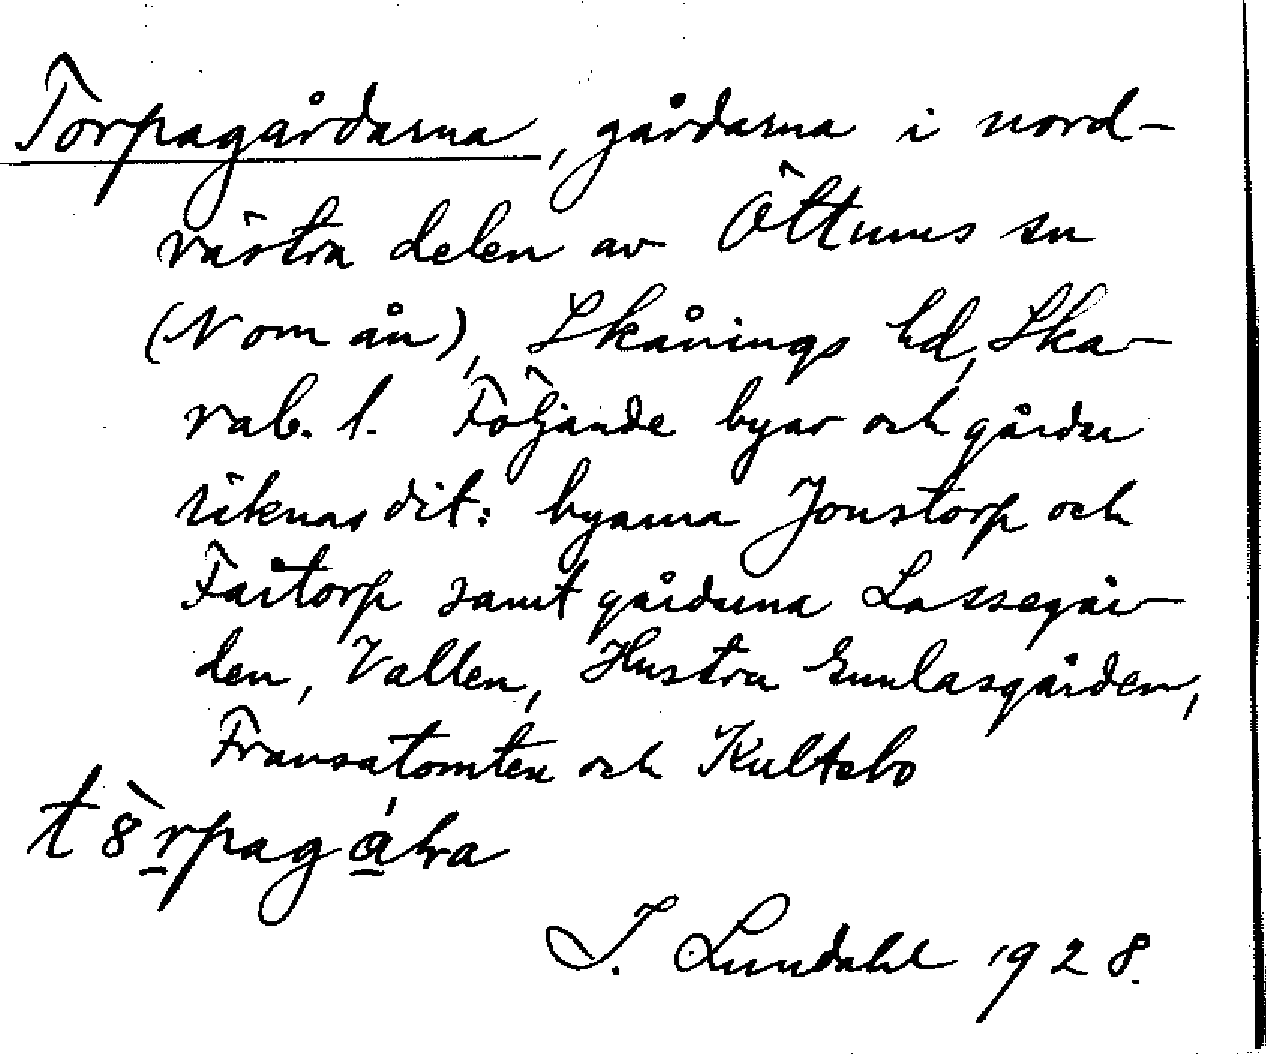 Torpagårdarna, gårdarna i nord-
västra delen av Öttums sn
(N om ån), Skånings hd, Ska-
rab. l. Följande byar och gårdar
räknas dit: byarna Jonstorp och
Fåtorp samt gårdarna Lassegår-
den, Vallen, Hustru Gunlasgården,
Fransatomten och Kultebo
t8̀rpagáɬra
J. Lundahl 1928.